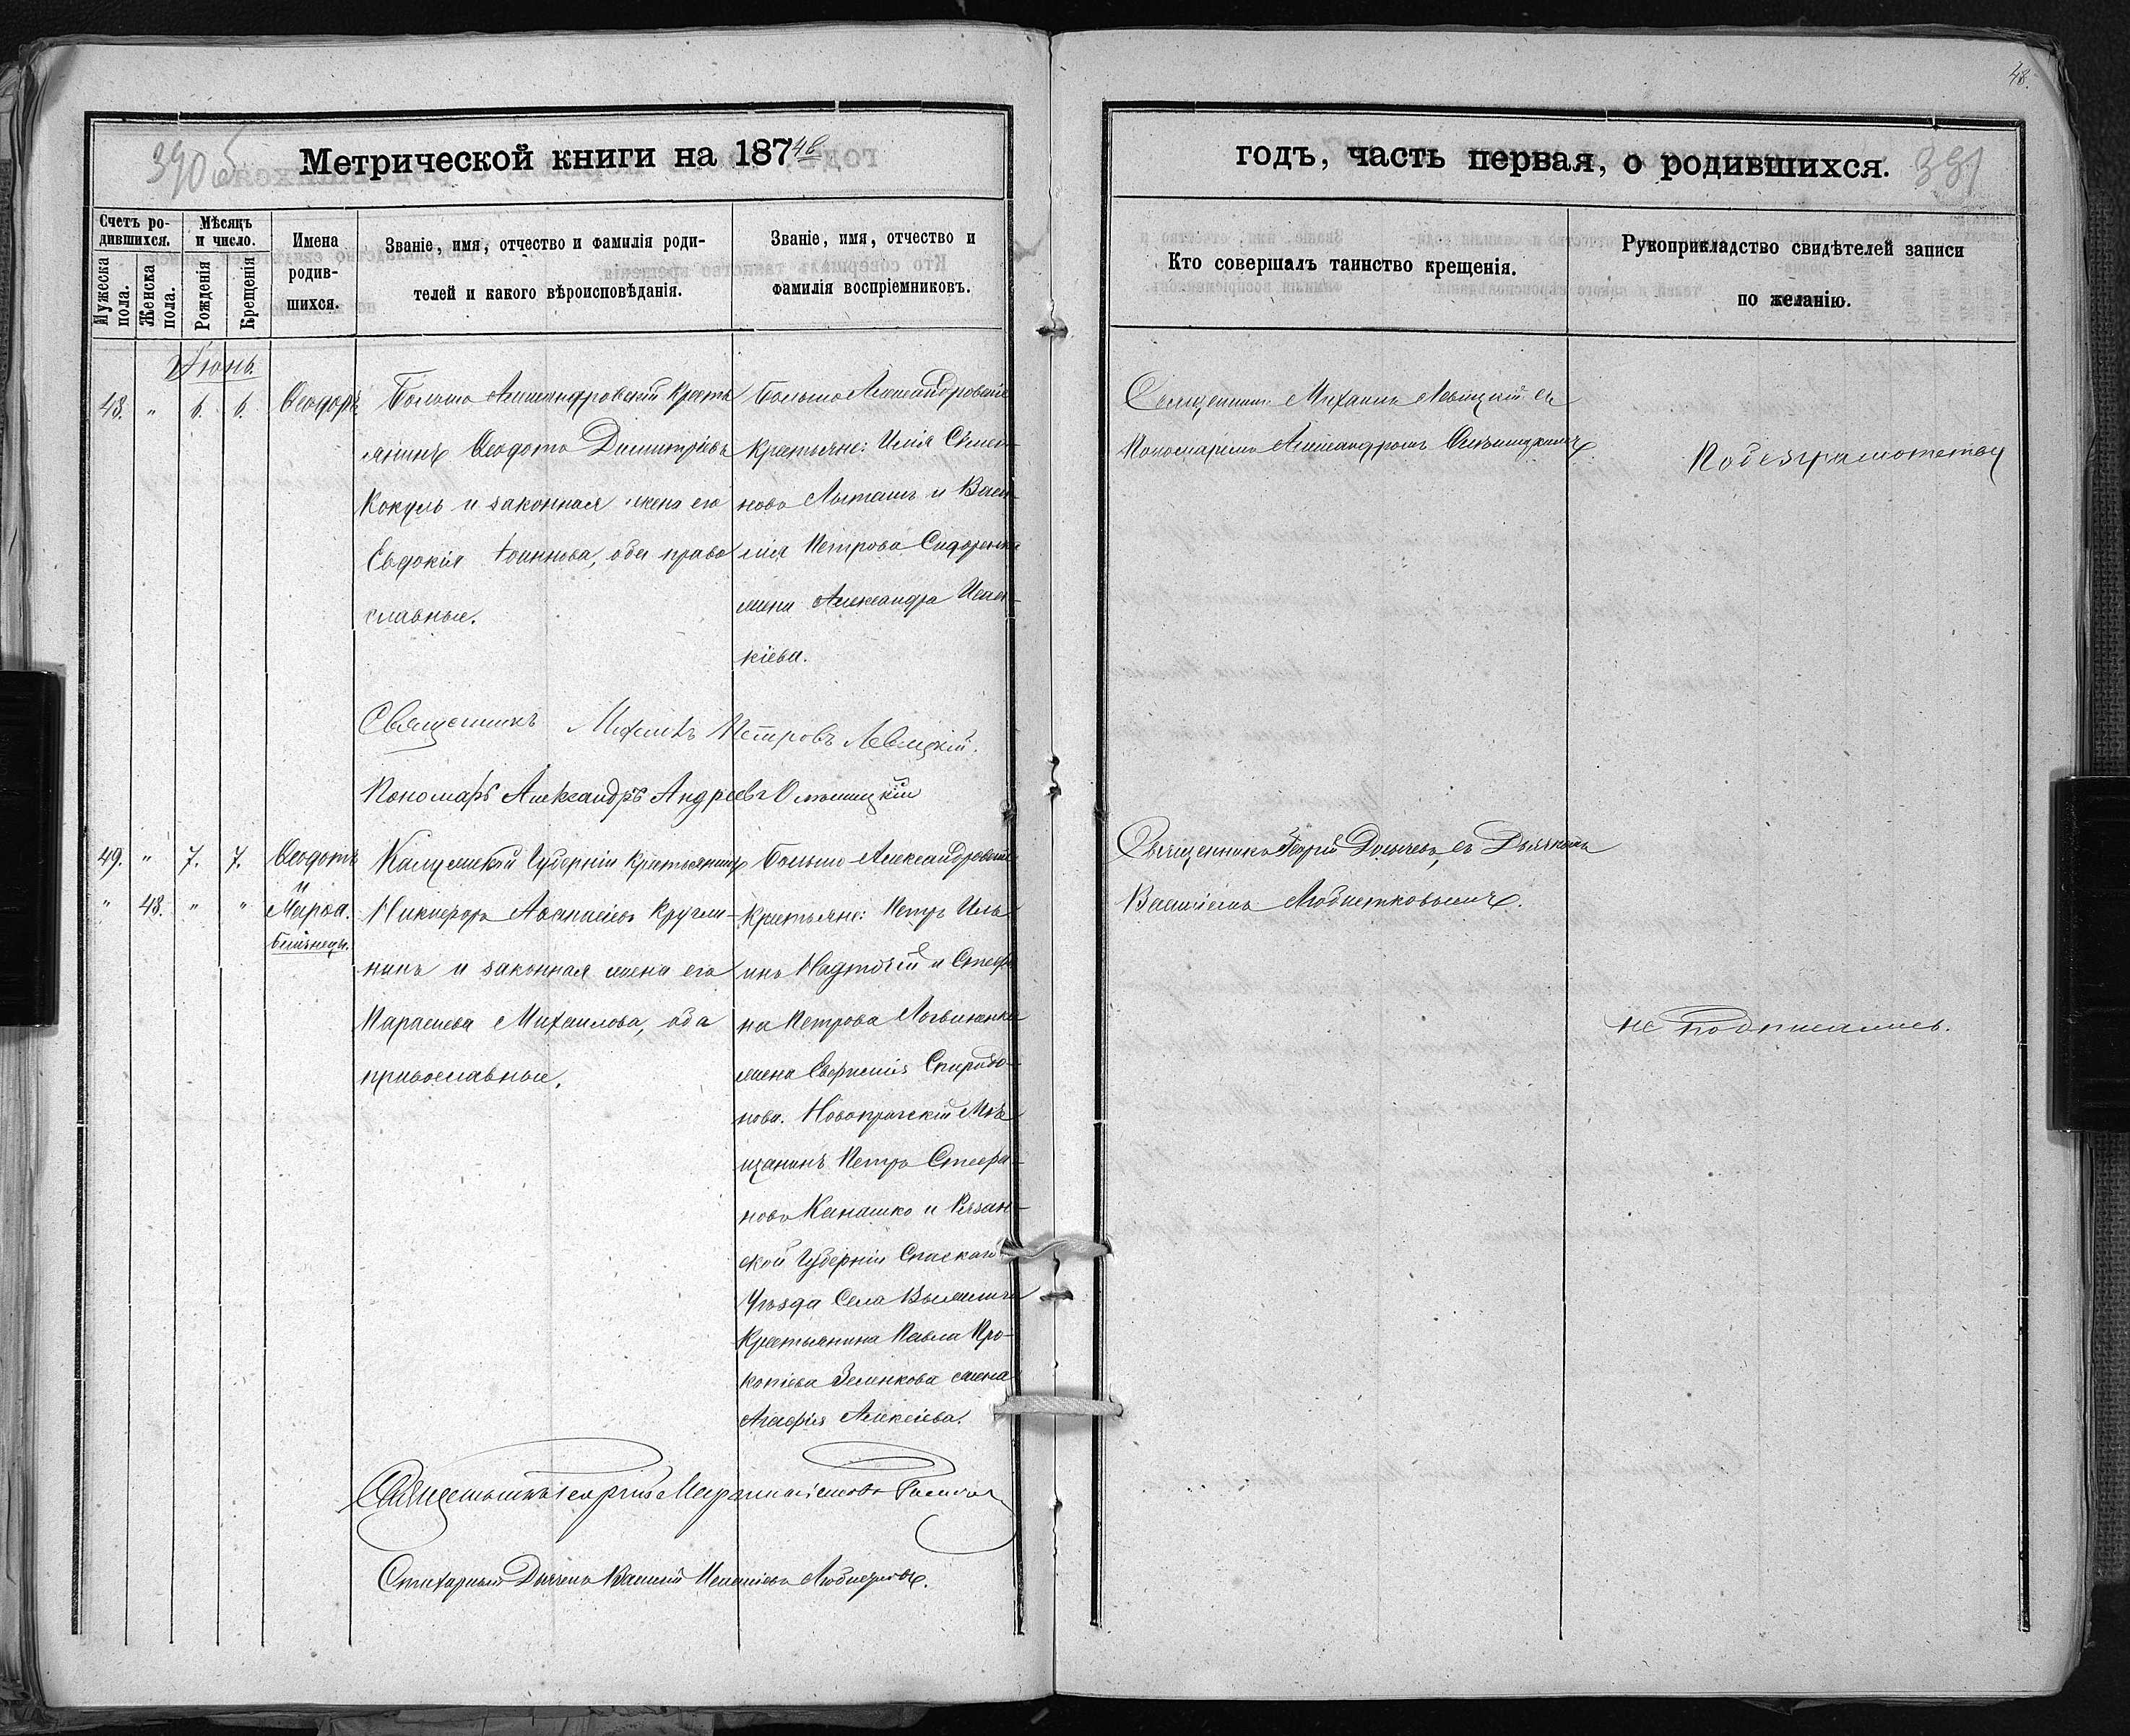 48.
390 об
Метрической книги на 1874й
годъ, часть первая, о родившихся.
391
Счетъ родившихся.
Мужеска пола.
Женска пола.
Мѣсяцъ и число.
Рожденія
Крещенія
Имена родившихся.
Званіе, имя, отчество и фамилія родителей и какого вѣроисповѣданія.
Званіе, имя, отчество и фамилія воспріемниковъ.
Кто совершалъ таинство крещенія.
Рукоприкладство свидѣтелей записи по желанію.
Іюнь.
48. " 6. 6. Ѳеодоръ
Больше Александровскій кресть
янинъ Ѳеодотъ Димитріевъ
Кокуль и законная жена его
Евдокія Іоаннова, оба право
славные.
Больше Александровскіе
крестьяне: Илія Сѵмео-
новъ Лыташъ и Васи-
лія Петрова Сидоренка
жена Александра Исаа-
кіева.
Священникъ Михаилъ Левицкій съ
Пономаремъ Александромъ
По безграмотству
Священникъ Михаилъ Петровъ Левицкій.
Пономарь Александръ Андреевъ
49. " 7. 7. Ѳеодотъ
и
" 48. " " Марѳа.
близнецы.
Калужской Губерніи Крестьянинъ
Никифоръ Аѳанасіевъ Кругли-
нинъ и законная жена его
Параскева Михаилова, оба
православные.
Больше-Александровскіе
Крестьяне: Петръ Иль
инъ Надточій и Стефа
на Петрова Логвиненка
жена Евфимія Спиридо-
нова. Новопражскій Мѣ
щанинъ Петръ Стефа-
новъ Канашко и Рязан-
ской Губерніи Спаскаго
Уѣзда Села
Крестьянина Павла Про-
копіева Зеленкова жена
Агафія Алексіева.
Священникъ Георгій съ Дьячкомъ
Василіемъ Любистковымъ.
не подписались.
Священникъ Георгій
Стихарный Дьячекъ Василій